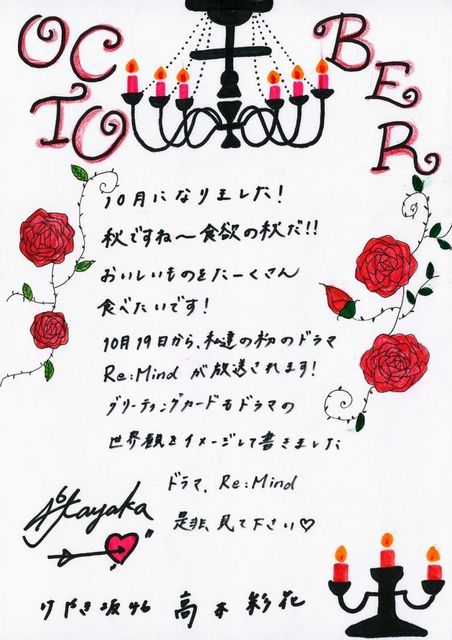 OCTOBER
10月になりました!
秋ですね〜食欲の秋だ!!
おいしいものをたーくさん
食べたいです!
10月19日から、私達の初のドラマ
Re:Mindが放送されます!
グリーティングカードもドラマの
世界観をイメージして書きました
ドラマ、Re:Mind
是非、見て下さい♡
Ayaka
けやき坂46 高本彩花